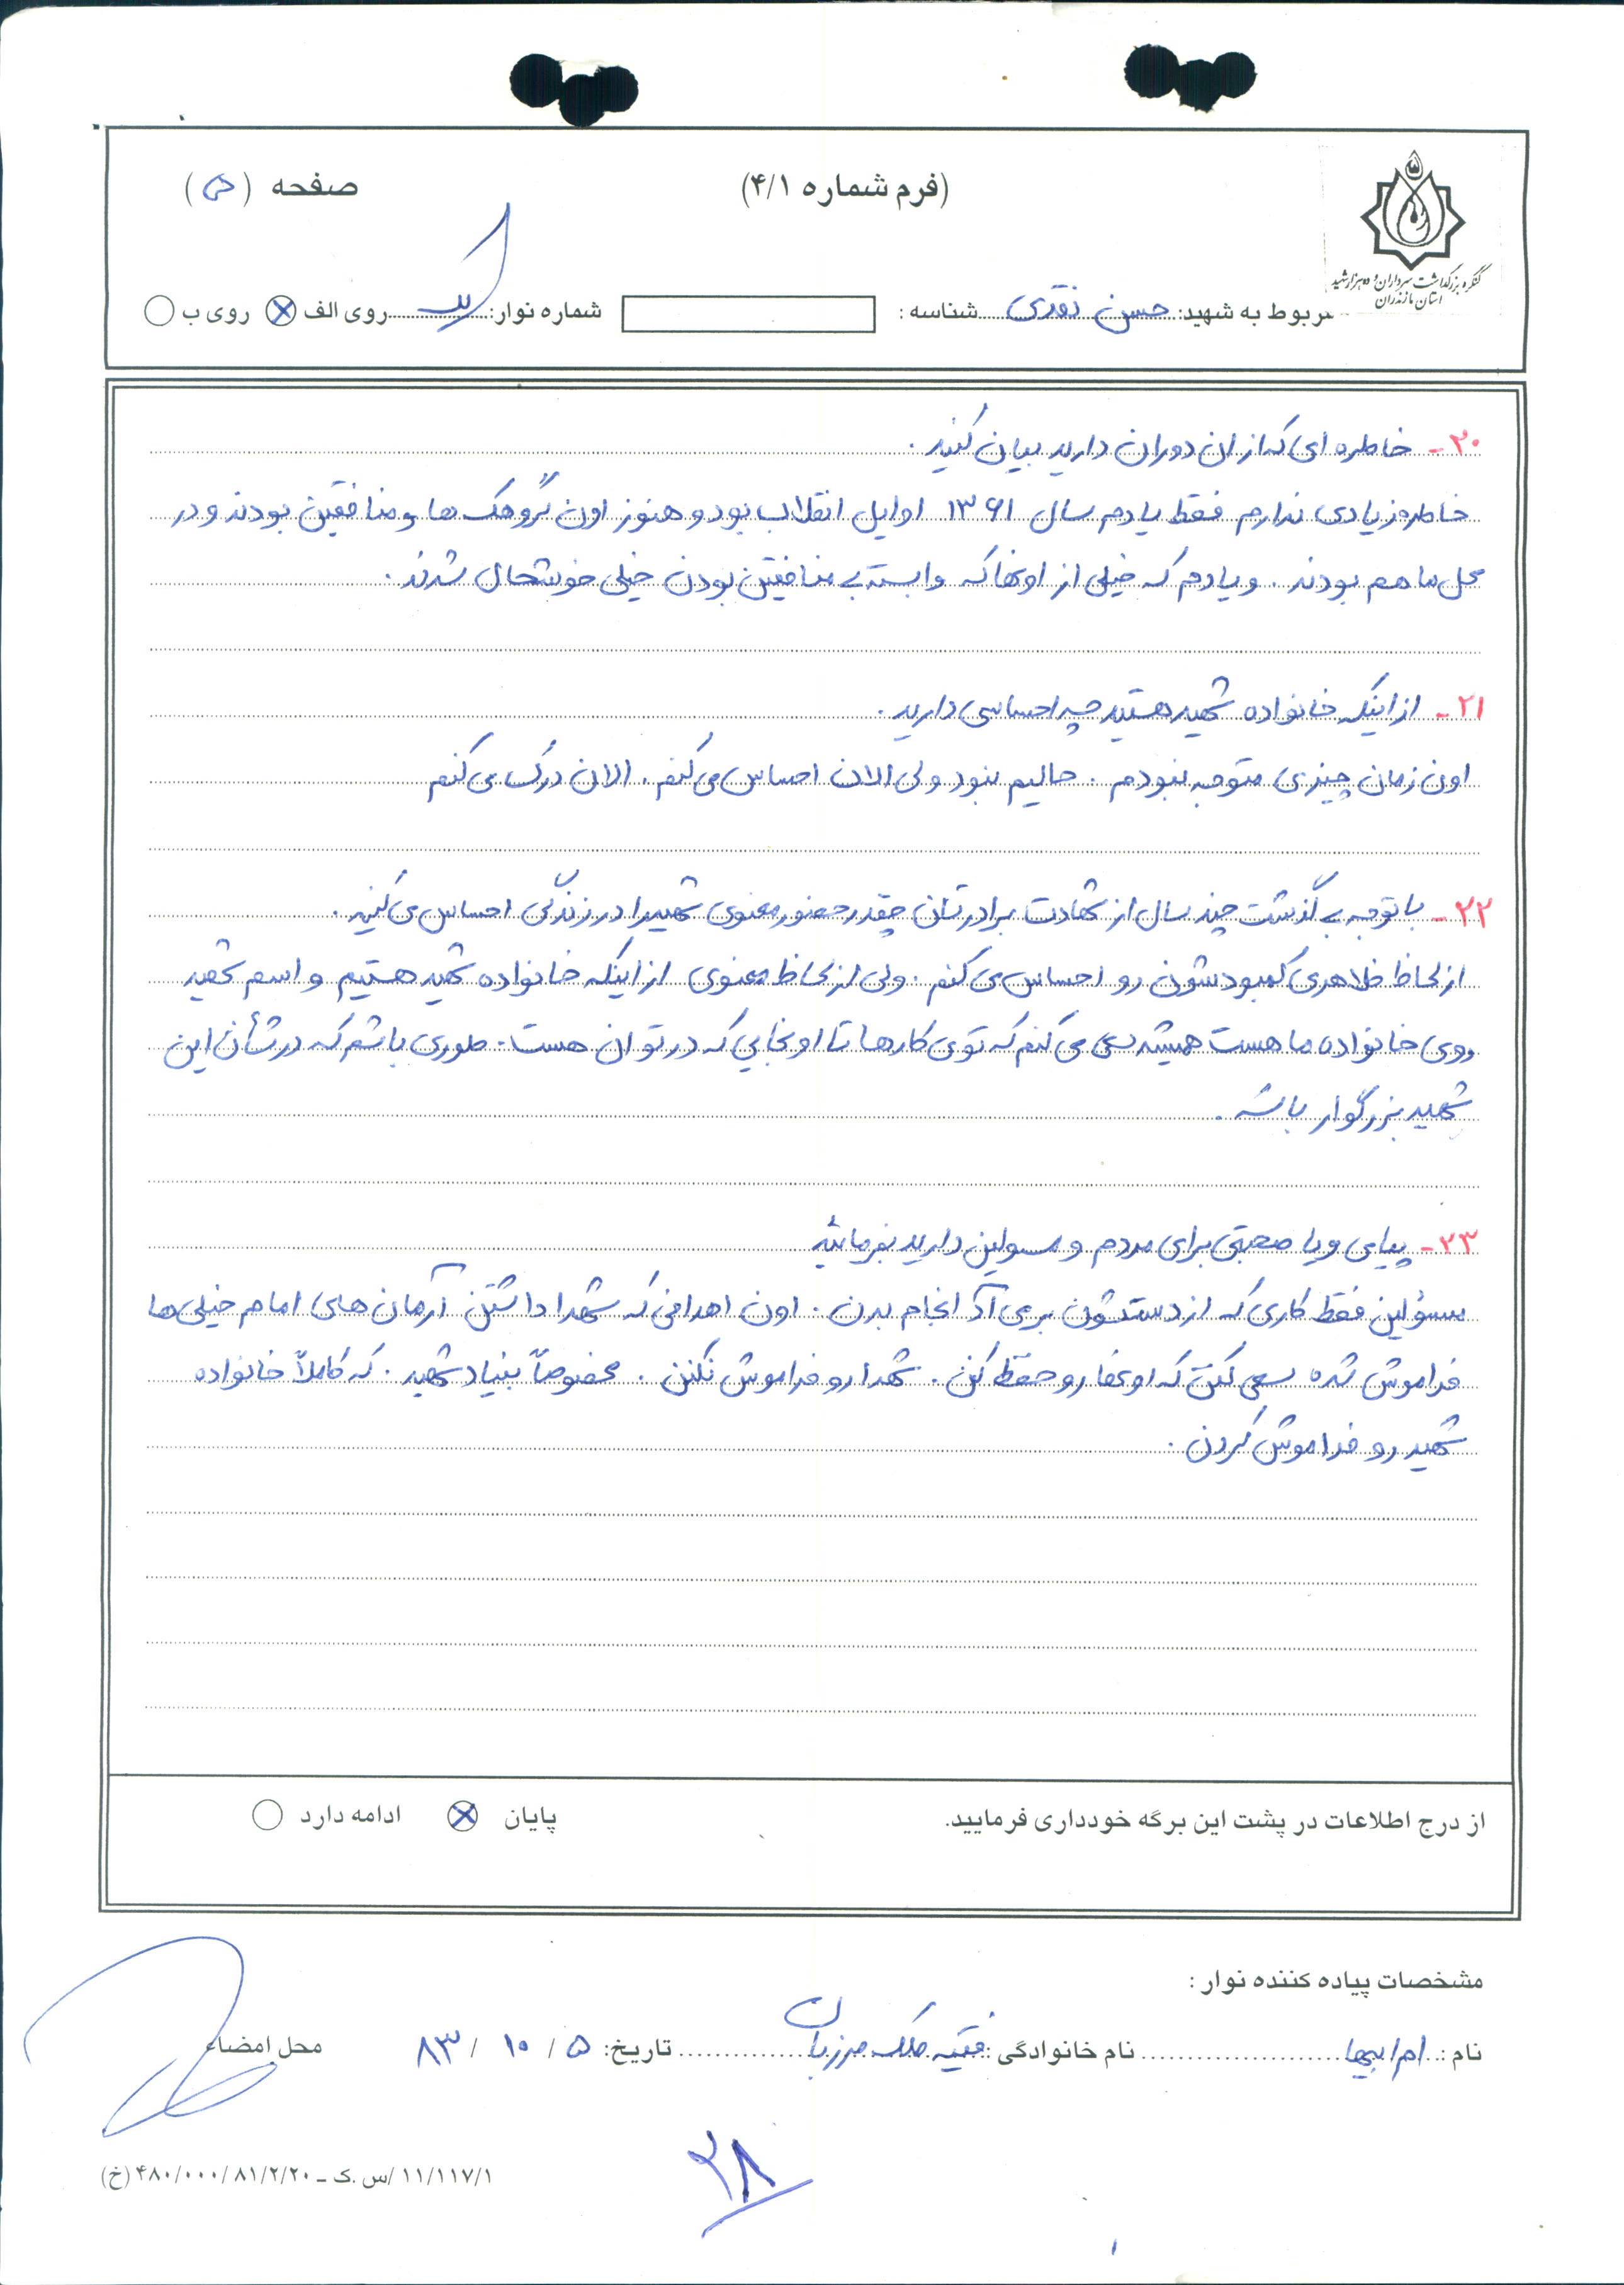 (فرم شماره ۴/۱)
صفحه (۵)
کنگره بزرگداشت سرداران و ده هزار شهید
استان مازندران
مربوط به شهید: حسن نقدی شناسه: شماره نوار: یک روی الف روی ب
۲۰- خاطره ای که از اون دوران دارید بیان کنید.
خاطره زیادی ندارم فقط یادم سال ۱۳۶۱ اوایل انقلاب بود و هنوز اون گروهک ها و منافقین بودند و در
محل ما هم بودند. و یادم که خیلی از اونها که وابسته به منافقین بودن خیلی خوشحال شدند.
۲۱- از اینکه خانواده شهید هستید چه احساسی دارید.
اون زمان چیزی متوجه نبودم. حالیم نبود ولی الان احساس می کنم. الان درک می کنم
۲۲- با توجه به گذشت چند سال از شهادت برادرتان چقدر حضور معنوی شهید را در زندگی احساس می کنید.
از لحاظ ظاهری کمبودشون رو احساس می کنم. ولی از لحاظ معنوی از اینکه خانواده شهید هستیم و اسم شهید
روی خانواده ما هست همیشه سعی می کنم که توی کارها تا اونجایی که در توان هست. طوری باشم که در شأن این
شهید بزرگوار باشه.
۲۳- پیامی و یا صحبتی برای مردم و مسولین دارید بفرمائید
مسؤلین فقط کاری که از دستشون برمی آد انجام بدن. اون اهدافی که شهدا داشتن آرمان های امام خیلی ها
فراموش شده سعی کنن که اونها رو حفظ کنن. شهدا رو فراموش نکنن. مخصوصاً بنیاد شهید. که کاملاً خانواده
شهید رو فراموش کردن.
از درج اطلاعات در پشت این برگه خودداری فرمایید. پایان ادامه دارد
مشخصات پیاده کننده نوار:
نام: ام ابیها نام خانوادگی: فقیه ملک مرزبان تاریخ: ۵ / ۱۰ / ۸۳ محل امضاء
۲۸
۱۱/۱۱۷/۱/س.ک - ۴۸۰/۰۰۰/۸۱/۲/۲۰ (خ)